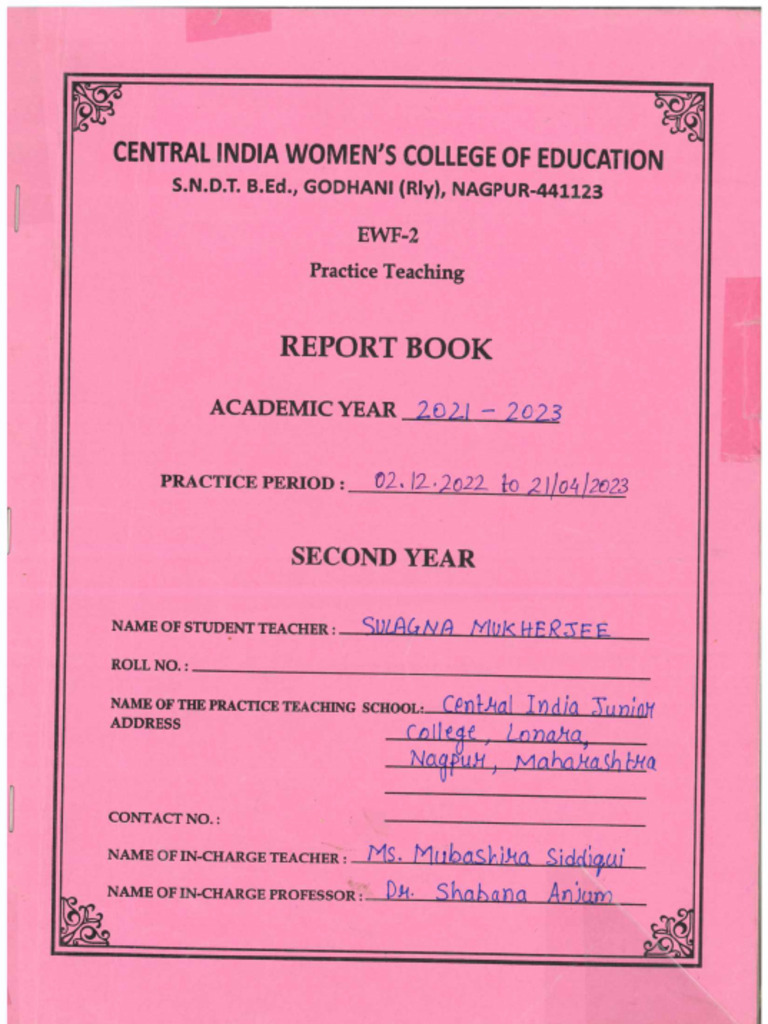 CENTRAL INDIA WOMEN'S COLLEGE OF EDUCATION
S.N.D.T. B.Ed., GODHANI (Rly), NAGPUR-441123
EWF-2
Practice Teaching
REPORT BOOK
ACADEMIC YEAR 2021 - 2023
PRACTICE PERIOD : 02.12.2022 to 21/04/2023
SECOND YEAR
NAME OF STUDENT TEACHER : SULAGNA MUKHERJEE
ROLL NO. :
NAME OF THE PRACTICE TEACHING SCHOOL: Central India Junior
ADDRESS College, Lonara,
Nagpur, Maharashtra
CONTACT NO. :
NAME OF IN-CHARGE TEACHER : Ms. Mubashira Siddiqui
NAME OF IN-CHARGE PROFESSOR : Dr. Shabana Anjum